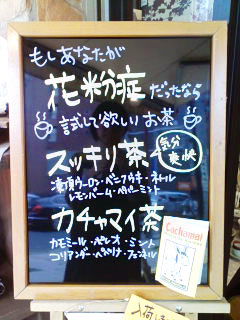 もしあなたが
花粉症だったなら
試して欲しいお茶
スッキリ茶
気分爽快
凍頂ウーロン・べニフウキ・ネトル
レモンバーム・ペパーミント
カチャマイ茶
カモミール・ボルド・ミント
コリアンダー・フェンネル
Cachamai
入荷しま